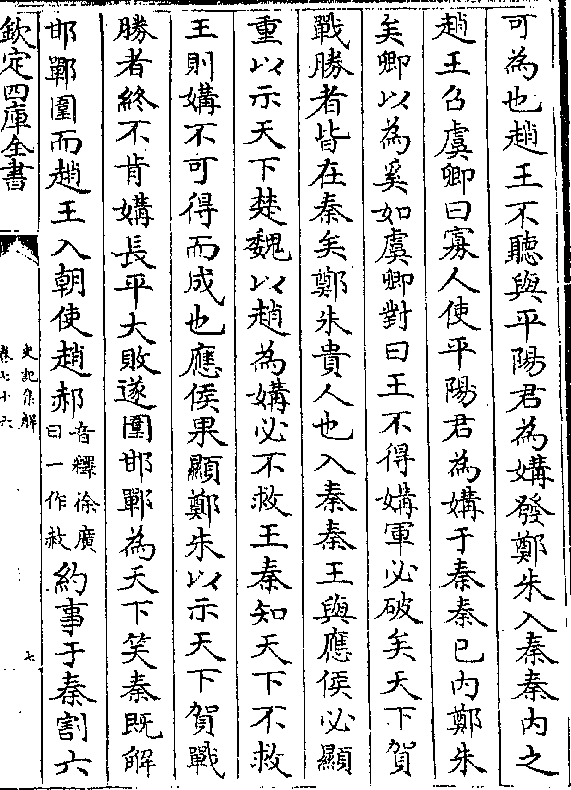 可為也趙王不聽與平陽君為媾發鄭朱入秦秦內之
趙王召虞卿曰寡人使平陽君為媾于秦秦已內鄭朱
矣卿以為奚如虞卿對曰王不得媾軍必破矣天下賀
戰勝者皆在秦矣鄭朱貴人也入秦秦王與應侯必顯
重以示天下楚魏以趙為媾必不救王秦知天下不救
王則媾不可得而成也應侯果顯鄭朱以示天下賀戰
勝者終不肯媾長平大敗遂圍邯鄲為天下笑秦既解
邯鄲圍而趙王入朝使趙郝音釋徐廣曰一作赦約事于秦割六
欽定四庫全書
史記集解
卷七十六
七